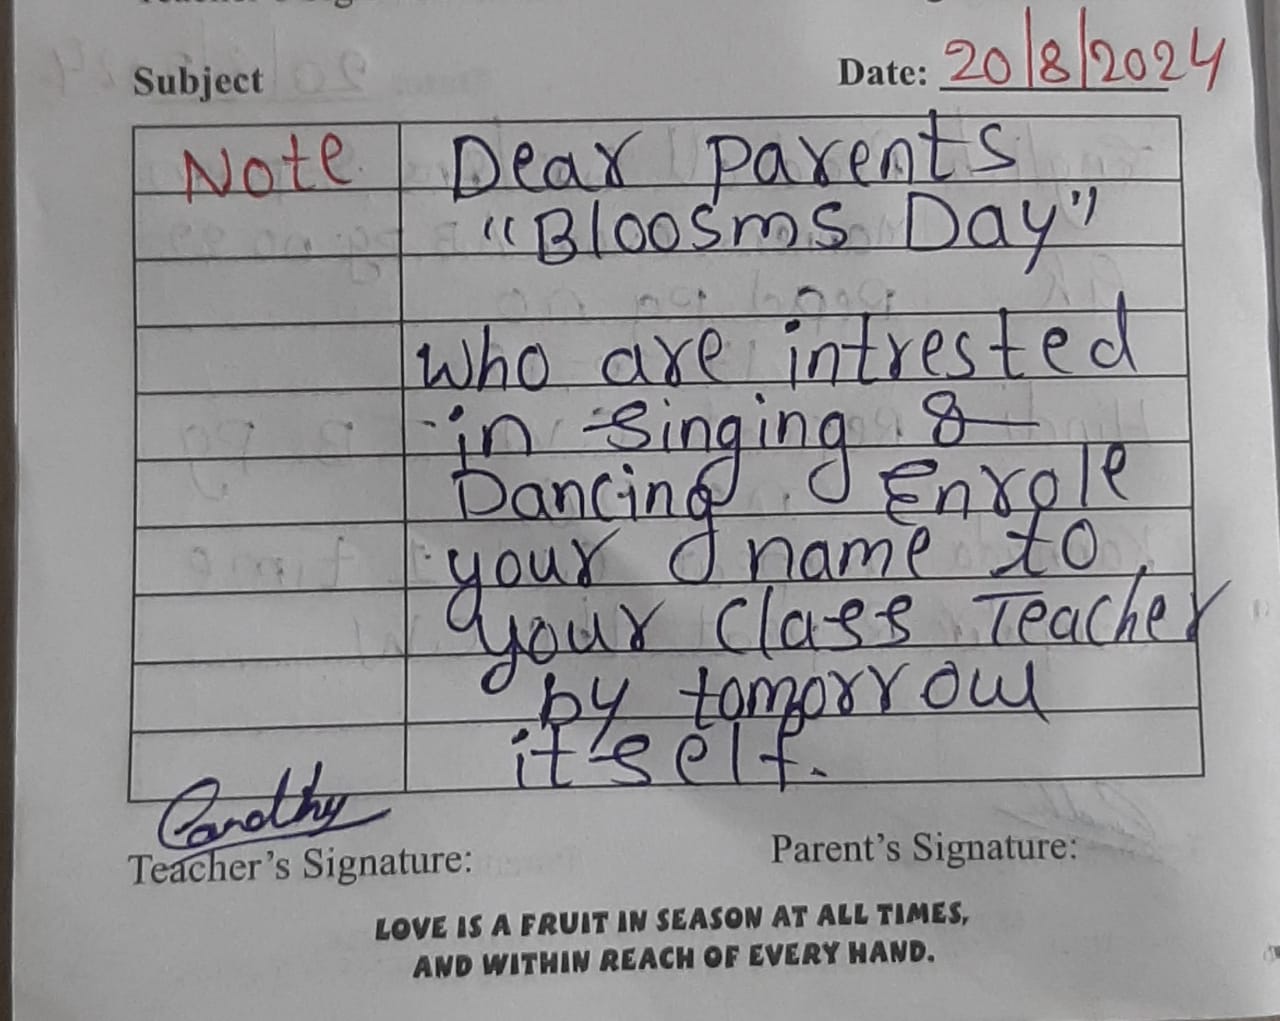 Subject Date: 20/8/2024
Note Dear Parents
"Bloosms Day"
Who are intrested
in singing &
Dancing Enrole
your name to
your Class Teacher
by tomorrow
itself.
Teacher's Signature: Parent's Signature:
LOVE IS A FRUIT IN SEASON AT ALL TIMES,
AND WITHIN REACH OF EVERY HAND.